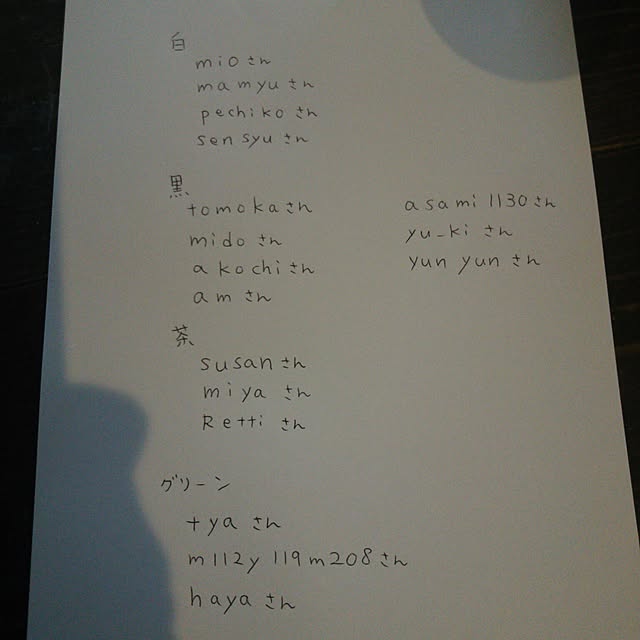 白
mioさん
mamyuさん
pechikoさん
sensyuさん
黒
tomokaさん
midoさん
akochiさん
amさん
asami1130さん
yu_kiさん
yunyunさん
茶
susanさん
miyaさん
Rettiさん
グリーン
tyaさん
m112y119m208さん
hayaさん